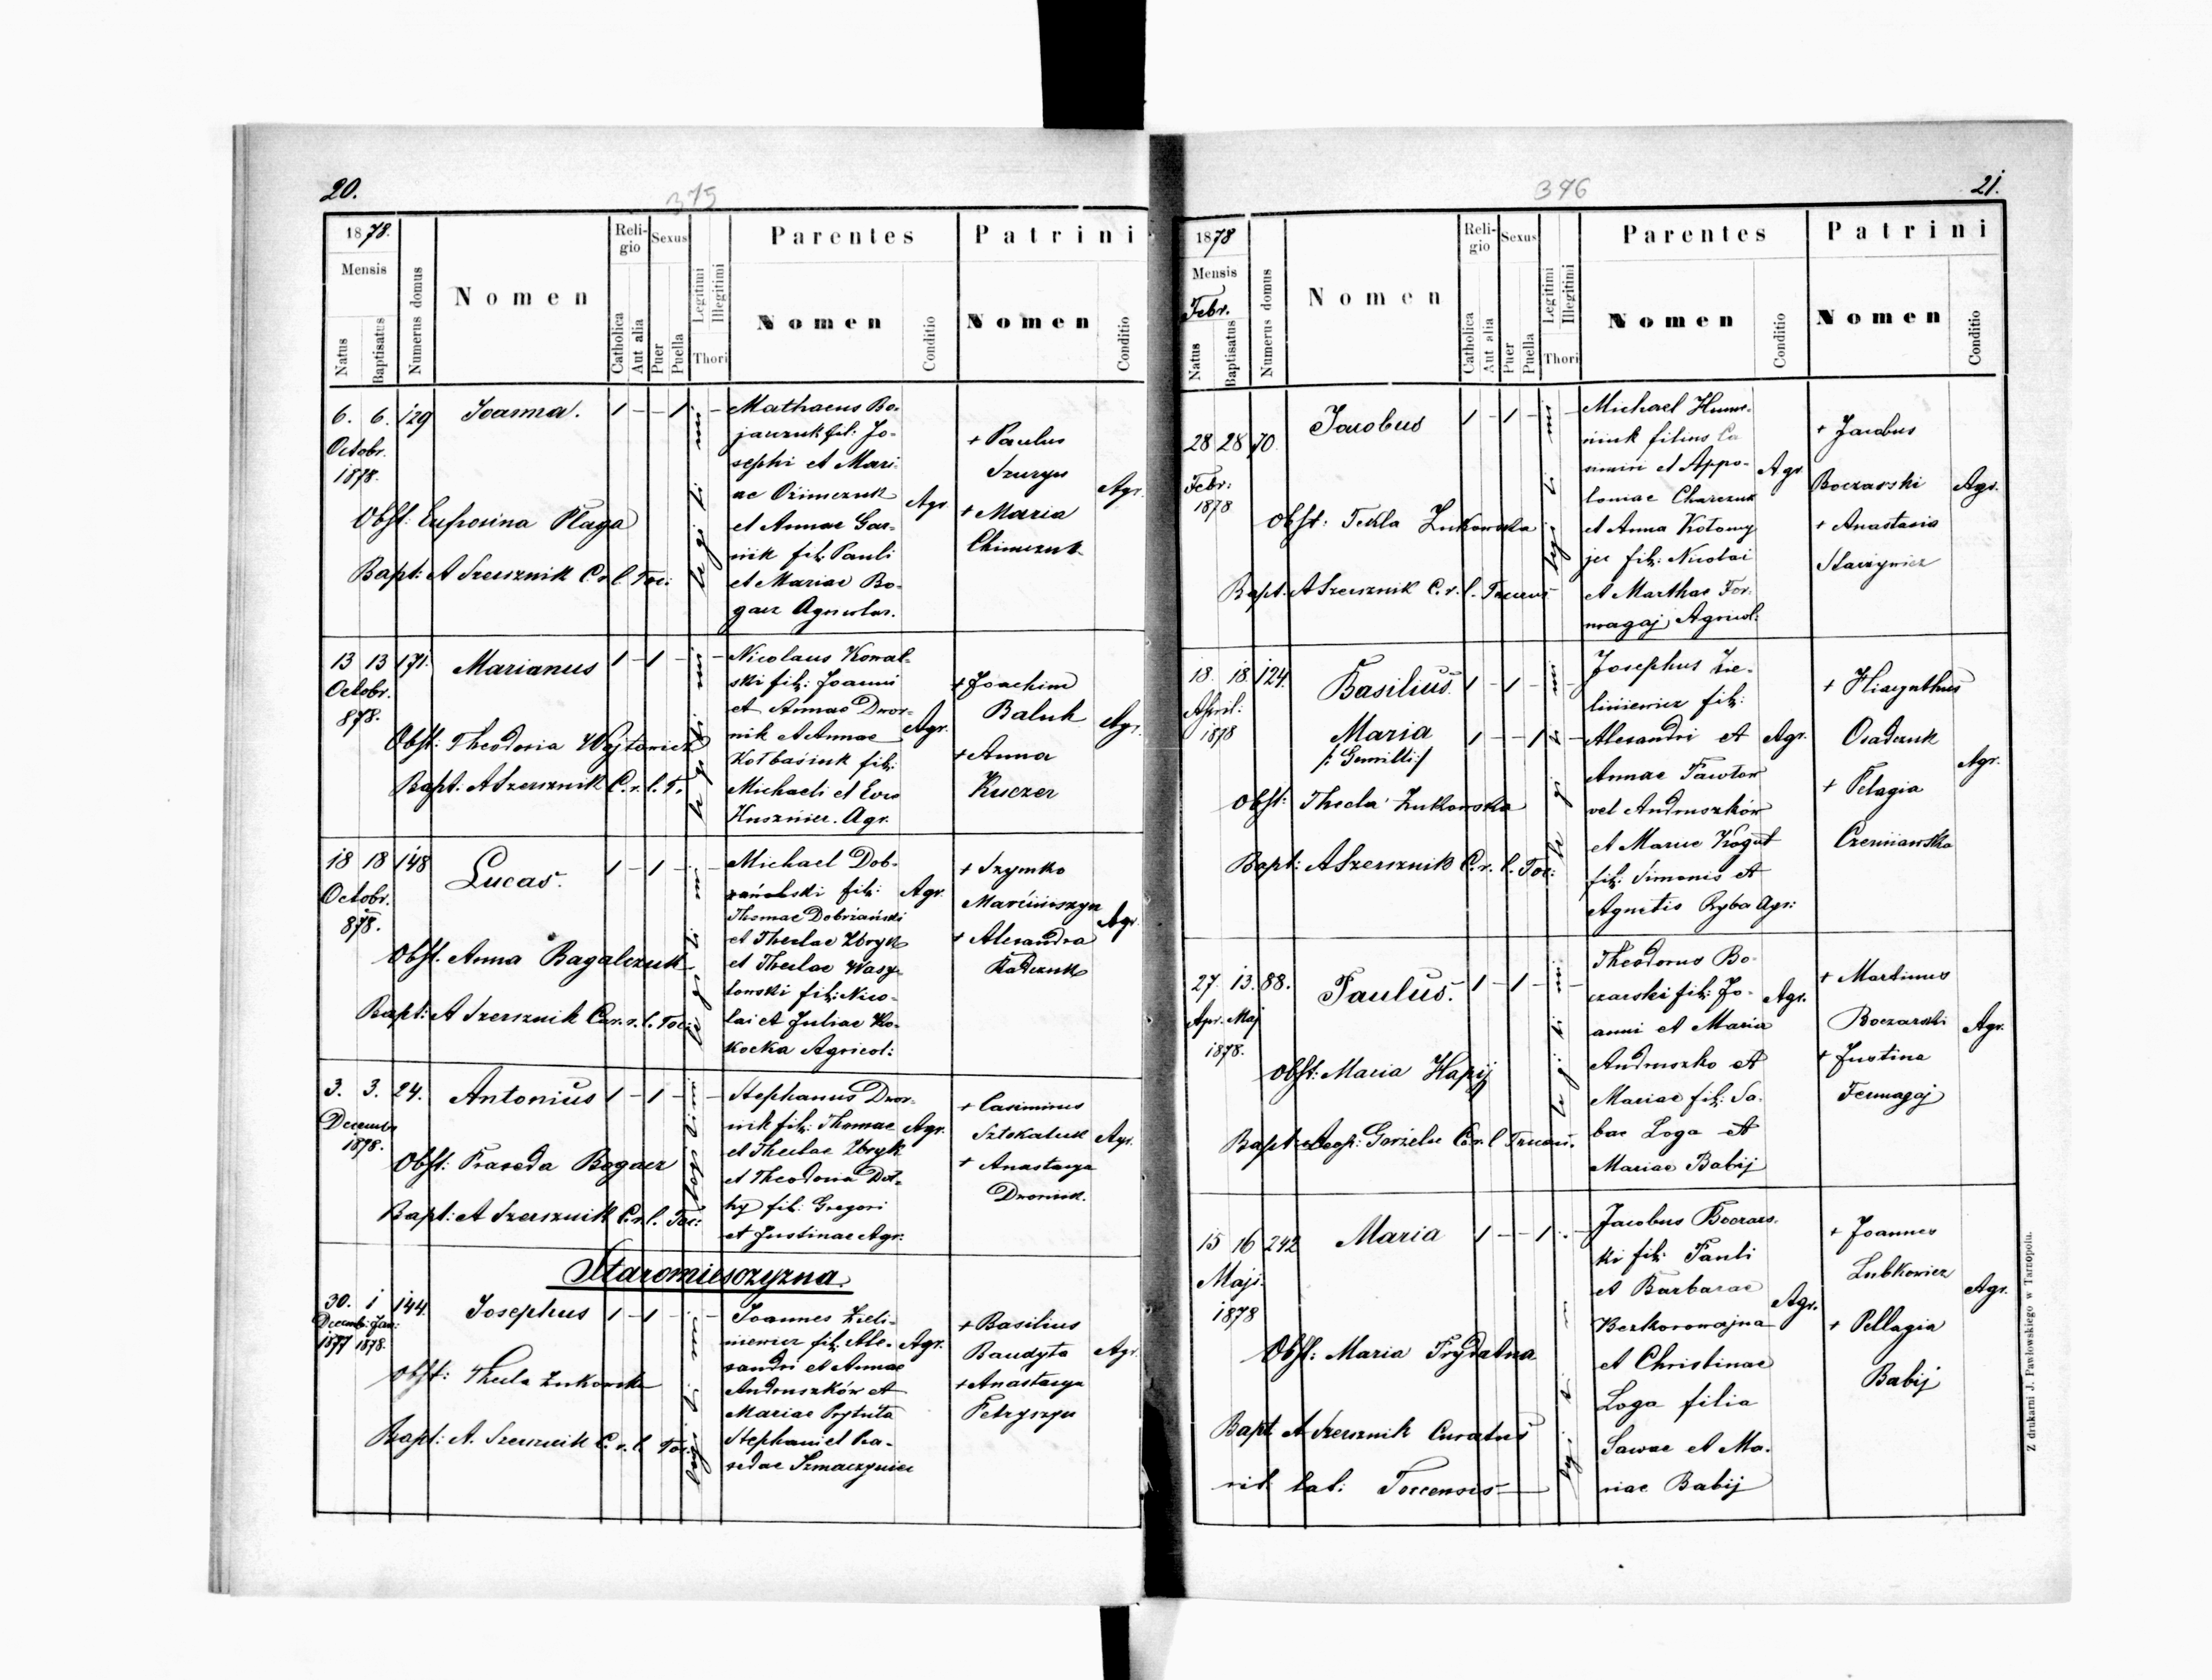 20.
375
18 78.
Mensis
Natus
Baptisatus
Numerus domus
Nomen
Religio
Catholica
Aut alia
Sexus
Puer
Puella
Legitimi
Illegitimi
Thori
Parentes
Nomen
Conditio
Patrini
Nomen
Conditio
6. 6. 129 Joanna. 1 - - 1 -
Octobr.
1878.
Obst: Eufrosina Plaga
Bapt: A Szersznik C. r. l. Toc:
legitimi
Mathaeus Bo-
jarczuk fil: Jo-
sephi et Mari-
ae Ozimczuk
et Annae Gar-
nik fil: Pauli
et Mariae Bo-
gacz Agricolar.
Agr.
+ Paulus
Szuryn
+ Maria
Chimczuk
Agr.
13 13 171. Marianus 1 - 1 - -
Octobr.
878.
Obst: Theodosia Wojtowicz
Bapt. A Szersznik C. r. l. T.
legitimi
Nicolaus Kowal-
ski fil: Joanni
et Annae Dwor-
nik et Annae
Kołbaśiuk fil:
Michaeli et Eva
Kusznier. Agr.
Agr.
+ Joachim
Baluk
+ Anna
Kuczer
Agr.
18 18 148 Lucas. 1 - 1 - -
Octobr.
878.
Obst. Anna Bagalczuk
Bapt: A Szersznik Cur. r. l. Toc:
legitimi
Michael Dob-
rański fil:
Thomae Dobrzański
et Theclae Zbryk
et Theclae Wasy-
lowski fil: Nico-
lai et Juliae Ko-
kocka Agricol:
Agr.
+ Szymko
Marciniszyn
+ Alexandra
Kadczuk
Agr.
3. 3. 24. Antonius 1 - 1 - -
Decembr
1878.
Obst: Praxeda Bogacz
Bapt: A Szersznik C. r. l. Toc:
legitimi
Stephanus Dwor-
nik fil: Thomae
et Theclae Zbryk
et Theodosia Dot-
hy fil: Gregori
et Justinae Agr:
Agr.
+ Casimirus
Sztokaluk
+ Anastasya
Dwornik.
Agr.
Staromiesczyzna
30. 1 144. Josephus 1 - 1 - -
Decemb: Jan:
1877 1878.
Obst: Thecla Zukowska
Bapt: A. Szersznik C. r. l. Toc.
legitimi
Joannes Zieli-
niewicz fil: Ale-
xandri et Annae
Andruszków et
Mariae Prytuła
Stephani et Pra-
xedae Szmaczyniec
Agr.
+ Basilius
Baudyta
+ Anastasya
Petryszyn
Agr.
376
21.
1878
Mensis
Febr.
Natus
Baptisatus
Numerus domus
Nomen
Religio
Catholica
Aut alia
Sexus
Puer
Puella
Legitimi
Illegitimi
Thori
Parentes
Nomen
Conditio
Patrini
Nomen
Conditio
28 28 70. Jacobus 1 - 1 - -
Febr:
1878
Obst: Tekla Zukowska
Bapt. A Szersznik C. r. l.
legitimi
Michael Hume-
niuk filius Ca
simiri et Appo-
loniae Charczuk
et Anna Kołomy
jec fil: Nicolai
et Marthae Fer-
magaj, Agricol:
Agr
+ Jacobus
Boczarski
+ Anastasia
Starzyniec
Agr.
18. 18. 124. Basilius 1 - 1 - -
April:
1878
Maria 1 - - 1 -
/: Gemilli :/
Obst: Thecla Zukowska
Bapt: A Szersznik C. r. l. Toc:
legitimi
Josephus Zie-
liniewicz fil:
Alexandri et
Annae Pawlow
vel Andruszków
et Mariae Kogut
fil: Simonis et
Agnetis Ryba Agr:
Agr.
+ Hiacynthus
Osadczuk
+ Pelagia
Czerniawska
Agr.
27. 13. 88. Paulus. 1 - 1 - -
Apr. Maj
1878.
Obst: Maria Hapij
Bapt: Leop: Gorzelec C. r. l.
legitimi
Theodorus Bo-
czarski fil: Jo-
anni et Maria
Andruszko et
Mariae fil: Sa-
bae Loga et
Mariae Babij
Agr.
+ Martinus
Boczarski
+ Justina
Fermagaj
Agr.
15 16 242 Maria 1 - - 1 -
Maji.
1878
Obst: Maria Prydatna
Bapt A Szersznik Curatus
rit. lat. Toccensis
legitimi
Jacobus Boczars-
ki fil: Pauli
et Barbarae
Bezkorowajna
et Christinae
Loga filia
Sawae et Ma-
riae Babij
Agr.
+ Joannes
Lubkowicz
+ Pellagia
Babij
Agr.
Z drukarni J. Pawłowskiego w Tarnopolu.